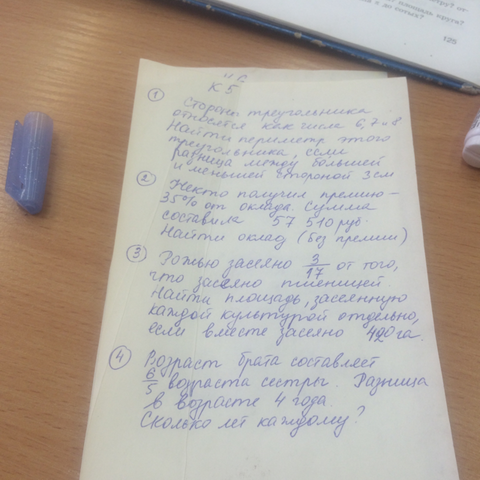 125
К 5
① Стороны треугольника
относятся как числа 6, 7 и 8
Найти периметр этого
треугольника, если
разница между большей
и меньшей стороной 3 см
② Некто получил премию –
35% от оклада. Сумма
составила 57 510 руб.
Найти оклад (без премии)
③ Рожью засеяно 3/17 от того,
что засеяно пшеницей.
Найти площадь, засеянную
каждой культурой отдельно,
если вместе засеяно 420 га.
④ Возраст брата составляет
6/5 возраста сестры. Разница
в возрасте 4 года.
Сколько лет каждому?